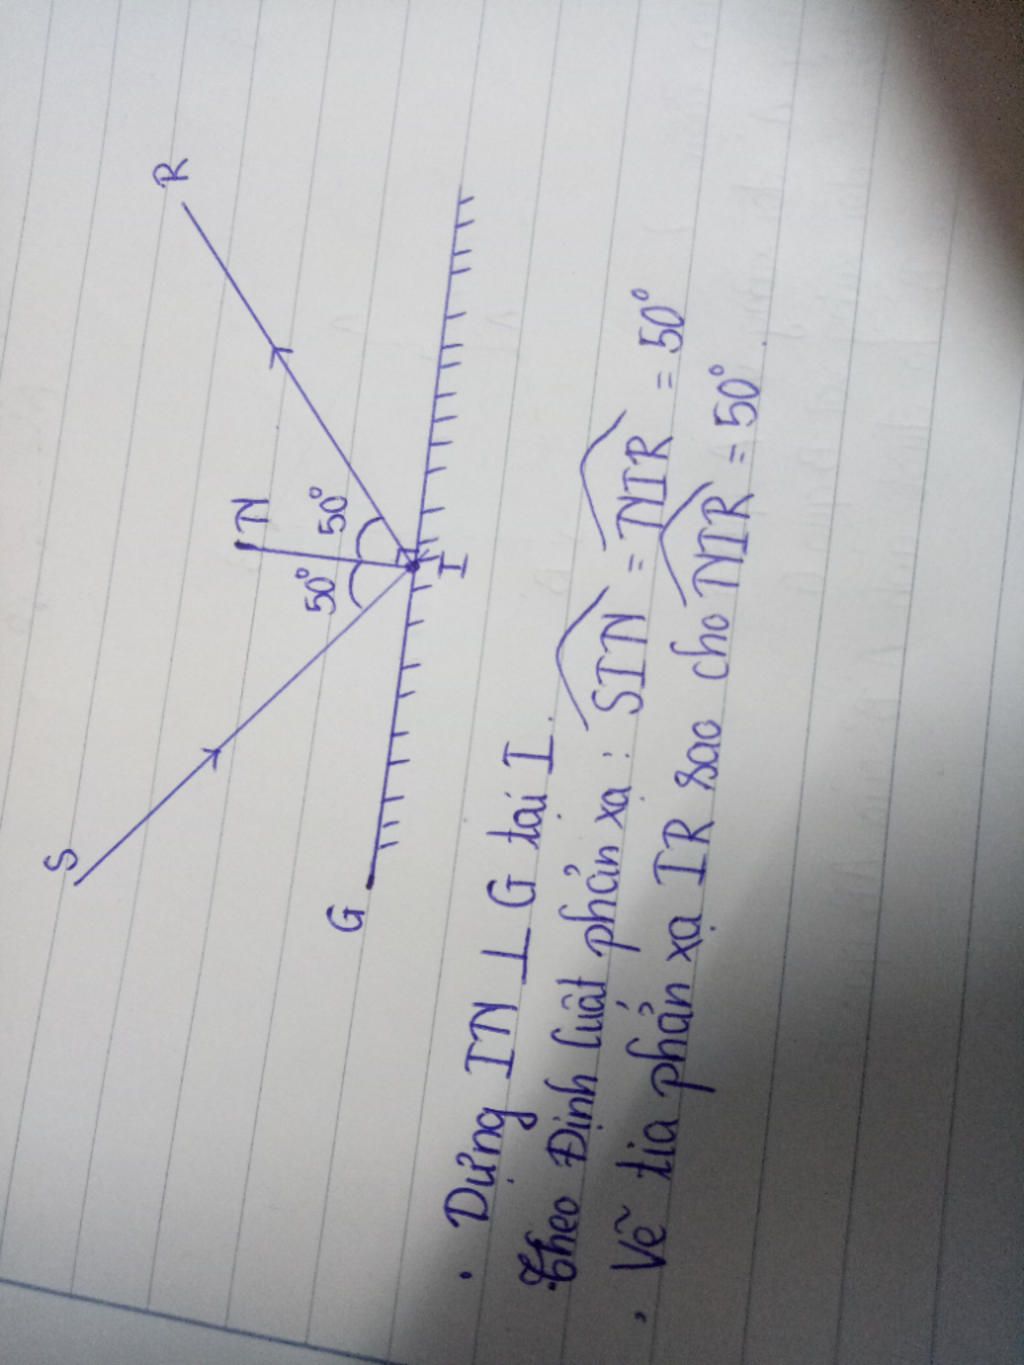 S
R
N
50° 50°
G
I
. Dựng IN ⊥ G tại I.
Theo Định luật phản xạ : SIN = NIR = 50°
. Vẽ tia phản xạ IR sao cho NIR = 50°.